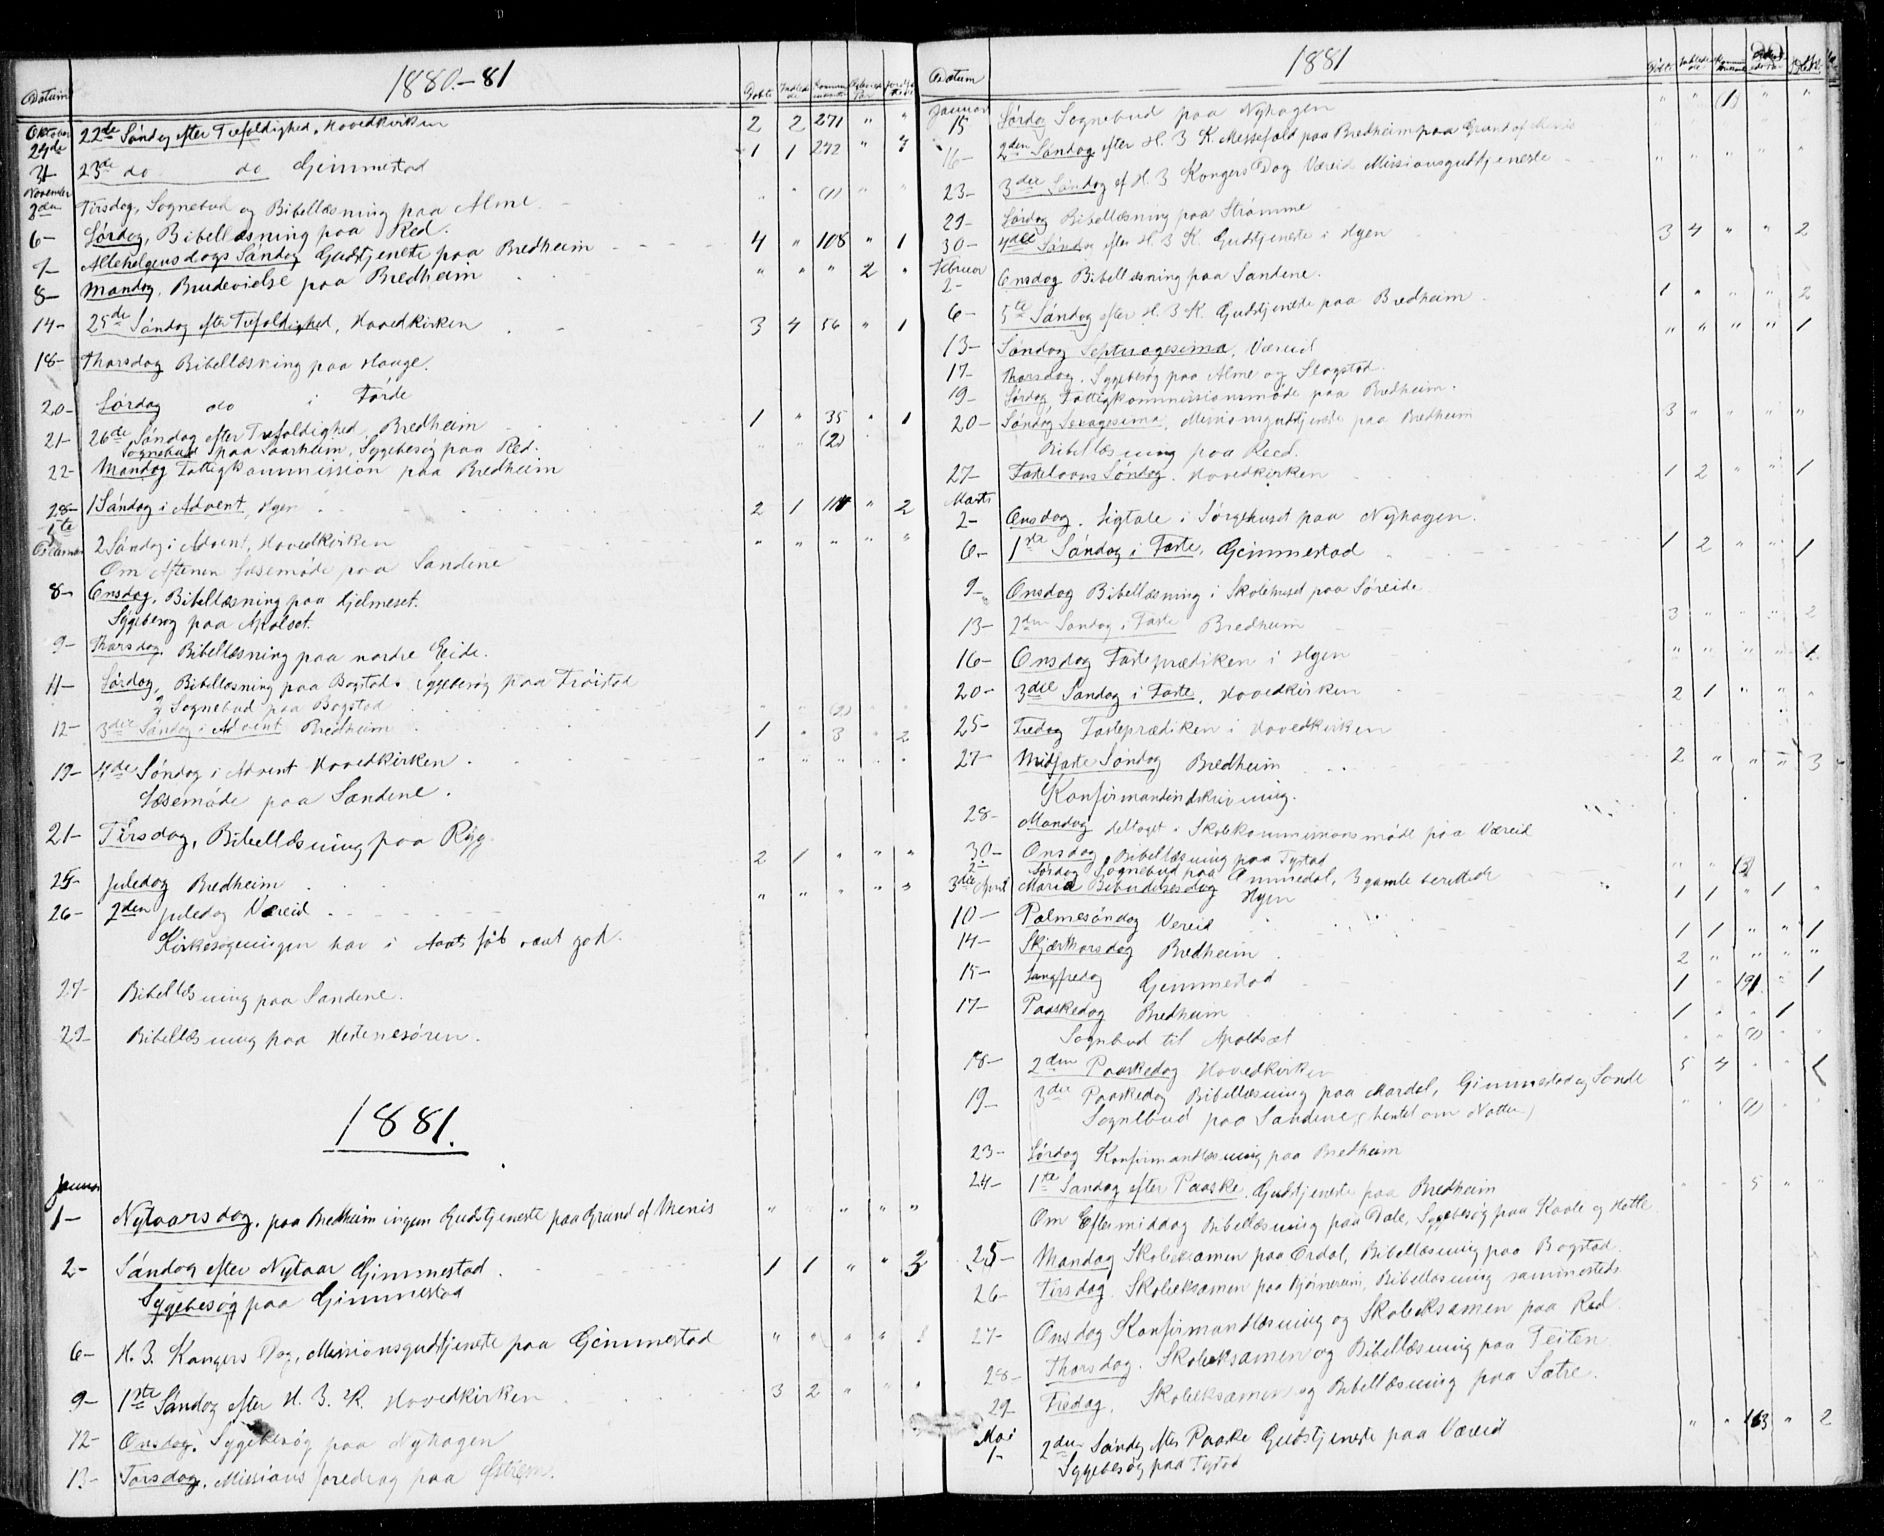 1880.-81
Datum Døbte Indled. de Kommunikanter
Oktober 24de 22de Søndag efter Trefoldighed, Hovedkirken 2 2 271 " "
31 23de do do Gimmestad 1 1 272 "
November 2den Tirsdag, Sognebud og Bibellæsning paa Alme (1)
6- Lørdag, Bibellæsning paa Red.
7- Allehelgensdags Søndag Gudstjeneste paa Bredheim 4 " 108 " 1
8- Mandag, Brudevielse paa Bredheim " " " 2 "
14- 25de Søndag efter Trefoldighed, Hovedkirken 3 4 56 " 1
18- Thorsdag Bibellæsning paa Hauge.
20- Lørdag do i Førde
21- 26de Søndag efter Trefoldighed, Bredheim 1 " 35 " 1
Sognebud paa Saarheim, Sygebesøg paa Red. (2)
22- Mandag Fattigkommission paa Bredheim
28- 1 Søndag i Advent, Hyen 2 1 " 2
5te December 2 Søndag i Advent, Hovedkirken " " " " "
Om Aftenen Læsemøde paa Sandene
8- Onsdag, Bibellæsning paa Hjelmeset.
Sygebesøg paa Apalset.
9- Thorsdag, Bibellæsning paa nordre Eide.
11- Lørdag, Bibellæsning paa Bogstad. Sygebesøg paa Frøistad
Sognebud paa Bogstad
12- 3die Søndag i Advent Bredheim 1 " 3 " 2
19- 4de Søndag i Advent Hovedkirken
Læsemøde paa Sandene.
21- Tirsdag, Bibellæsning paa Ryg.
25- Juledag Bredheim 2 1 " " "
26- 2den Juledag Væreid
Kirkesøgningen har i Aarets løb været god.
27- Bibellæsning paa Sandene.
29- Bibellæsning paa Hestenesøren.
1881.
Januar
1- Nytaarsdag, paa Bredheim ingen Gudstjeneste paa Grund af Menis " " " " "
2- Søndag efter Nytaar Gimmestad 1 1 " " 3
Sygebesøg paa Gimmestad
6- H. 3. Kongers Dag, Missionsgudstjeneste paa Gimmestad
9- 1ste Søndag efter H. 3. K. Hovedkirken 3 2 " " "
12- Onsdag, Sygebesøg paa Nyhagen
13- Torsdag, Missionsforedrag paa
1881
Datum Døbte
Januar 15 Lørdag Sognebud paa Nyhagen " " (1) " "
16- 2den Søndag efter H. 3 K. Messefald paa Bredheim paa Grund af Menis
23- 3die Søndag ef H. 3 Kongers Dag Væreid Missionsgudstjeneste
29- Lørdag Bibellæsning paa Strømme
30- 4de Søndag efter H. 3 K. Gudstjeneste i Hyen 3 4 " " 2
Februar 2- Onsdag Bibellæsning paa Sandene.
6- 5te Søndag efter H. 3 K. Gudstjeneste paa Bredheim 1 " " " 2
13- Søndag Septuagesima, Væreid " " " " 1
17- Thorsdag, Sygebesøg paa Alme og Slagstad.
19- Lørdag Fattigkommissionsmøde paa Bredheim.
20- Søndag Sexagesima, Missionsgudstjeneste paa Bredheim 3 " " " "
Bibellæsning paa Reed.
27- Fastelavns Søndag, Hovedkirken 1 2 " " 1
Marts 2- Onsdag. Ligtale i Sørgehuset paa Nyhagen.
6- 1ste Søndag i Faste, Gimmestad 1 2 " " 1
9- Onsdag Bibellæsning i Skolehuset paa Søreide
13- 2den Søndag i Faste Bredheim 3 " " " 2
16- Onsdag Fasteprædiken i Hyen " " " " 1
20- 3die Søndag i Faste, Hovedkirken 2 1 " " "
25- Fredag Fasteprædiken i Hovedkirken
27- Midfaste Søndag Bredheim 2 " " " 3
Konfirmandindskrivning.
28- Mandag deltaget i Skolekommissionsmøde paa Væreid
30- Onsdag, Bibellæsning paa Tystad
2- Lørdag Sognebud paa Ommedal, 3 gamle berettede " " (3)
3die April Maria Bebudelsesdag Hyen 1 1 " 1 "
10- Palmesøndag Vereid 1 1 " " 1
14- Skjærthorsdag Bredheim 2 " " " "
15- Langfredag Gimmestad 1 " 191 " 1
17- Paaskedag Bredheim 1 " " 1
Sognbud til Apoldsæt (1)
18- 2den Paaskedag Hovedkirken 5 4 " " 1
19- 3die Paaskedag Bibellæsning paa Mardal, Gimmestad og Sande
Sognebud paa Sandene, (hentet om Natten) (1)
23- Lørdag Konfirmandlæsning paa Bredheim
24- 1ste Søndag efter Paaske, Gudstjeneste paa Bredheim " " 5 " "
Om Eftermiddag Bibellæsning paa Dale, Sygebesøg paa Kaale og Hotle
25- Mandag Skoleeksamen paa Ordal, Bibellæsning paa Bogstad.
26- Tirsdag. Skoleeksamen paa Bjørnereim, Bibellæsning sammesteds
27- Onsdag Konfirmandlæsning og Skoleeksamen paa Red.
28- Thorsdag. Skoleeksamen og Bibellæsning paa Feiten
29- Fredag, Skoleeksamen og Bibellæsning paa Sætre.
Mai 1- 2den Søndag efter Paaske Gudstjeneste paa Væreid " " 163 " 2
Sygebesøg paa Tystad